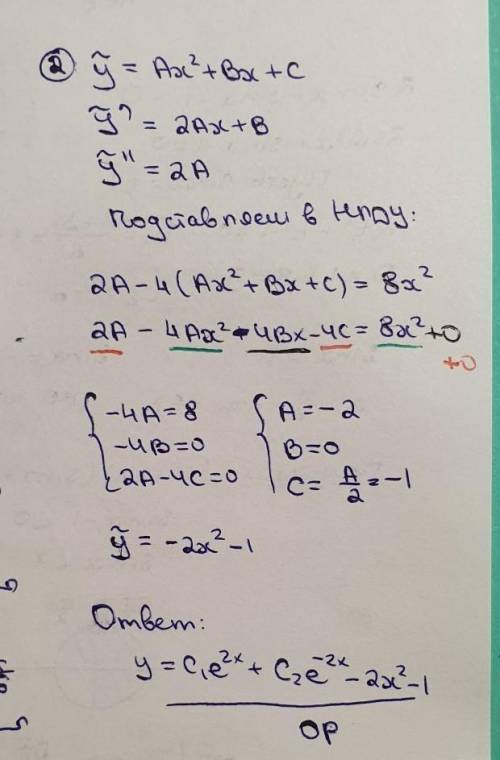 ② ỹ = Ax² + Bx + C
ỹ' = 2Ax + B
ỹ'' = 2A
Подставляем в НЛДУ:
2A - 4(Ax² + Bx + C) = 8x²
2A - 4Ax² - 4Bx - 4C = 8x² + 0
+0
{ -4A = 8 { A = -2
-4B = 0 B = 0
2A - 4C = 0 C = A/2 = -1
ỹ = -2x² - 1
Ответ:
y = C₁e²ˣ + C₂e⁻²ˣ - 2x² - 1
ОР